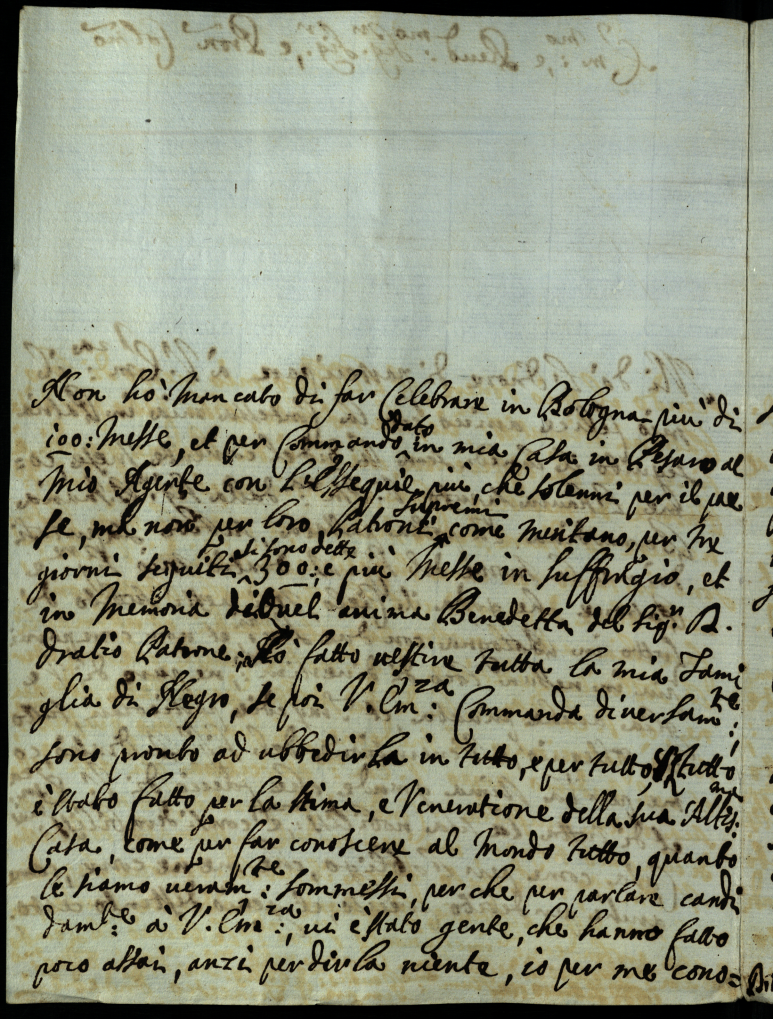 Non hò mancato di far Celebrare in Bologna più di
100: Messe, et per Commando dato in mia Casa in Pesaro al
mio Agente con l'Essequie più, che solenni per il pae
se, mà non per loro Patroni supremi come meritano, per tre
giorni seguiti si sono dette 300: e più Messe in suffragio, et
in memoria di quel anima Benedetta del Sig.r D.
Oratio Patrone; hò fatto vestire tutta la mia Fami
glia di Negro, se poi V. Em:za Commanda diversam:te,
sono pronto ad ubbedirla in tutto, e per tutto, tutto
è stato fatto per la stima, e Veneratione della sua Altis:ma
Casa, come per far conoscere al Mondo tutto, quanto
le siamo veram:te sommessi, per che per parlare candi
dam:te à V. Em:za, vi è stato gente, che hanno fatto
poco assai, anzi per dirla niente, io per me cono=